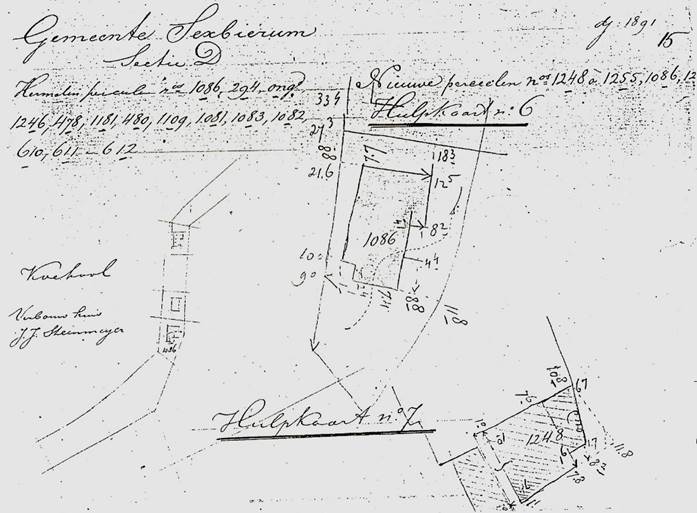 Gemeente Sexbierum
Sectie D
dj. 1891
15
nos 1086, 294, ongd
1246, 478, 1181, 480, 1109, 1081, 1083, 1082,
610, 611 – 612
Nieuwe perceelen nos 1248 à 1255, 1086, 12
Hulpkaart no 6
334
273
88
216
183
125
82
1086
44
88
118
Koehool
Verbouw huis
J.J. Steinmeyer
1086
Hulpkaart no 7
108
67
76
1248
17
118
82
78